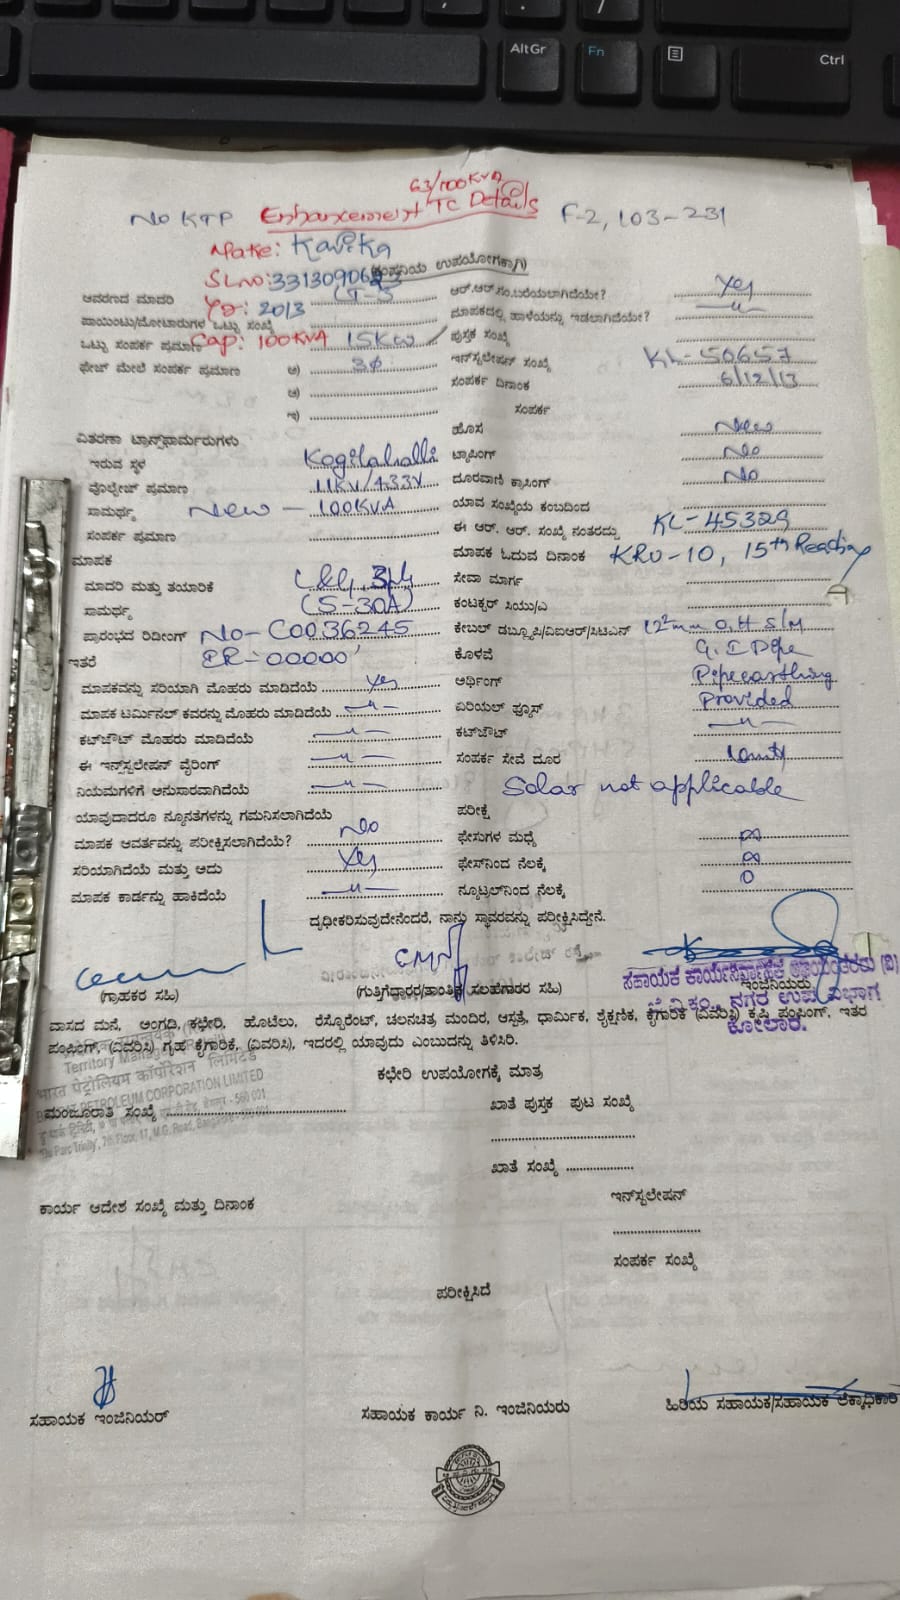 AltGr Fn Ctrl
63/100KVA
No KTP Enhancement TC Details F-2, 103-231
Make: Kavika
(ಕಂಪನಿಯ ಉಪಯೋಗಕ್ಕಾಗಿ)
SLno: 331309062
ಆವರಣದ ಮಾದರಿ LT-3 ಆರ್.ಆರ್.ನಂ.ಬರೆಯಲಾಗಿದೆಯೇ? Yes
Yr: 2013
ಪಾಯಿಂಟು/ಮೋಟಾರುಗಳ ಒಟ್ಟು ಸಂಖ್ಯೆ ಮಾಪಕದಲ್ಲಿ ಹಾಳೆಯನ್ನು ಇಡಲಾಗಿದೆಯೇ? — " —
ಒಟ್ಟು ಸಂಪರ್ಕ ಪ್ರಮಾಣ Cap: 100KVA 15KW ಪುಸ್ತಕ ಸಂಖ್ಯೆ
ಫೇಜ್ ಮೇಲೆ ಸಂಪರ್ಕ ಪ್ರಮಾಣ ಅ) 3ϕ ಇನ್‌ಸ್ಟಲೇಷನ್ ಸಂಖ್ಯೆ KL-50657
ಆ) ಸಂಪರ್ಕ ದಿನಾಂಕ 6/12/13
ಇ) ಸಂಪರ್ಕ
ವಿತರಣಾ ಟ್ರಾನ್ಸ್‌ಫಾರ್ಮರುಗಳು ಹೊಸ New
ಇರುವ ಸ್ಥಳ Kogilahalli ಟ್ಯಾಪಿಂಗ್ No
ವೊಲ್ಟೇಜ್ ಪ್ರಮಾಣ 11KV/433V ದೂರವಾಣಿ ಕ್ರಾಸಿಂಗ್ No
ಸಾಮರ್ಥ್ಯ New - 100KVA ಯಾವ ಸಂಖ್ಯೆಯ ಕಂಬದಿಂದ
ಸಂಪರ್ಕ ಪ್ರಮಾಣ ಈ ಆರ್. ಆರ್. ಸಂಖ್ಯೆ ನಂತರದ್ದು KL-45329
ಮಾಪಕ ಮಾಪಕ ಓದುವ ದಿನಾಂಕ KRU-10, 15th Reading
ಮಾದರಿ ಮತ್ತು ತಯಾರಿಕೆ L&G, 3ph ಸೇವಾ ಮಾರ್ಗ
ಸಾಮರ್ಥ್ಯ (5-30A) ಕಂಟಕ್ಟರ್ ಸಿಯು/ಎ
ಪ್ರಾರಂಭದ ರಿಡೀಂಗ್ No- C0036245 ಕೇಬಲ್ ಡಬ್ಲ್ಯೂಪಿ/ವಿಐಆರ್/ಸಿಟಿಎನ್ O.H S/M
ಇತರೆ IR-00000 ಕೊಳವೆ G.I Pipe
ಮಾಪಕವನ್ನು ಸರಿಯಾಗಿ ಮೊಹರು ಮಾಡಿದೆಯೆ Yes ಅರ್ಥಿಂಗ್ Pipe earthing
ಮಾಪಕ ಟರ್ಮಿನಲ್ ಕವರನ್ನು ಮೊಹರು ಮಾಡಿದೆಯೆ — " — ಏರಿಯಲ್ ಫ್ಯೂಸ್ Provided
ಕಟ್‌ಔಟ್ ಮೊಹರು ಮಾಡಿದೆಯೆ — " — ಕಟ್‌ಔಟ್ — " —
ಈ ಇನ್‌ಸ್ಟಲೇಷನ್ ವೈರಿಂಗ್ — " — ಸಂಪರ್ಕ ಸೇವೆ ದೂರ
ನಿಯಮಗಳಿಗೆ ಅನುಸಾರವಾಗಿದೆಯೆ — " — Solar not applicable
ಯಾವುದಾದರೂ ನ್ಯೂನತೆಗಳನ್ನು ಗಮನಿಸಲಾಗಿದೆಯೆ No ಪರೀಕ್ಷೆ
ಮಾಪಕ ಆವರ್ತವನ್ನು ಪರೀಕ್ಷಿಸಲಾಗಿದೆಯೆ? ಫೇಸುಗಳ ಮಧ್ಯೆ ∞
ಸರಿಯಾಗಿದೆಯೆ ಮತ್ತು ಅದು Yes ಫೇಸ್‌ನಿಂದ ನೆಲಕ್ಕೆ ∞
ಮಾಪಕ ಕಾರ್ಡನ್ನು ಹಾಕಿದೆಯೆ — " — ನ್ಯೂಟ್ರಲ್‌ನಿಂದ ನೆಲಕ್ಕೆ 0
ದೃಢೀಕರಿಸುವುದೇನೆಂದರೆ, ನಾನು ಸ್ಥಾವರವನ್ನು ಪರೀಕ್ಷಿಸಿದ್ದೇನೆ.
(ಗ್ರಾಹಕರ ಸಹಿ) (ಗುತ್ತಿಗೆಧಾರರ/ತಾಂತ್ರಿಕ ಸಲಹೆಗಾರರ ಸಹಿ) ಇಂಜಿನಿಯರು
ಸಹಾಯಕ ಕಾರ್ಯನಿರ್ವಾಹಕ ಅಭಿಯಂತರರು (ವಿ)
ಬೆ.ವಿ.ಕಂ., ನಗರ ಉಪ ವಿಭಾಗ
ಕೋಲಾರ.
ವಾಸದ ಮನೆ, ಅಂಗಡಿ, ಕಛೇರಿ, ಹೊಟೆಲು, ರೆಸ್ಟೊರೆಂಟ್, ಚಲನಚಿತ್ರ ಮಂದಿರ, ಆಸ್ಪತ್ರೆ, ಧಾರ್ಮಿಕ, ಶೈಕ್ಷಣಿಕ, ಕೈಗಾರಿಕೆ (ವಿವರಿಸಿ) ಕೃಷಿ ಪಂಪಿಂಗ್, ಇತರ
ಪಂಪಿಂಗ್, (ವಿವರಿಸಿ) ಗೃಹ ಕೈಗಾರಿಕೆ, (ವಿವರಿಸಿ), ಇದರಲ್ಲಿ ಯಾವುದು ಎಂಬುದನ್ನು ತಿಳಿಸಿರಿ.
Territory Manager
भारत पेट्रोलियम कॉर्पोरेशन लिमिटेड
BHARAT PETROLEUM CORPORATION LIMITED
'Du Parc Trinity', 7th Floor, 17, M.G. Road,
ಕಛೇರಿ ಉಪಯೋಗಕ್ಕೆ ಮಾತ್ರ
ಮಂಜೂರಾತಿ ಸಂಖ್ಯೆ ಖಾತೆ ಪುಸ್ತಕ ಪುಟ ಸಂಖ್ಯೆ
ಖಾತೆ ಸಂಖ್ಯೆ
ಕಾರ್ಯ ಆದೇಶ ಸಂಖ್ಯೆ ಮತ್ತು ದಿನಾಂಕ ಇನ್‌ಸ್ಟಲೇಷನ್
ಸಂಪರ್ಕ ಸಂಖ್ಯೆ
ಪರೀಕ್ಷಿಸಿದೆ
ಸಹಾಯಕ ಇಂಜಿನಿಯರ್ ಸಹಾಯಕ ಕಾರ್ಯ ನಿ. ಇಂಜಿನಿಯರು ಹಿರಿಯ ಸಹಾಯಕ/ಸಹಾಯಕ ಲೆಕ್ಕಾಧಿಕಾರಿ